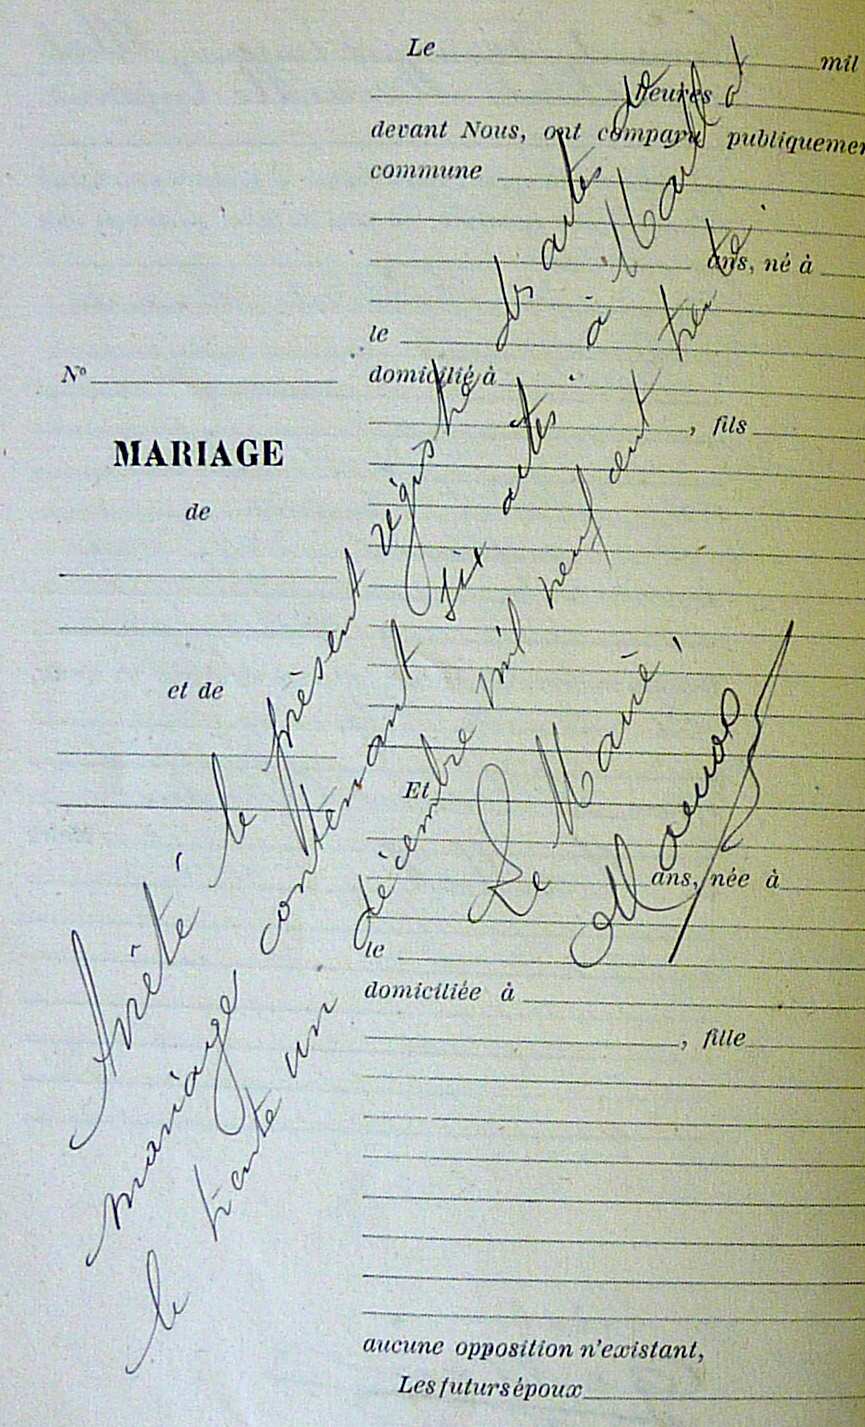 Le mil
heures
devant Nous, ont comparu publiquemen
commune
ans, né à
le
N° domicilié à
, fils
MARIAGE
de
et de
Et
ans, née à
le
domiciliée à
, fille
aucune opposition n'existant,
Les futurs époux
Arrêté le présent régistre d'actes de
mariage contenant six actes. à Maillat
le trente un décembre mil neuf cent trente.
Le Maire,